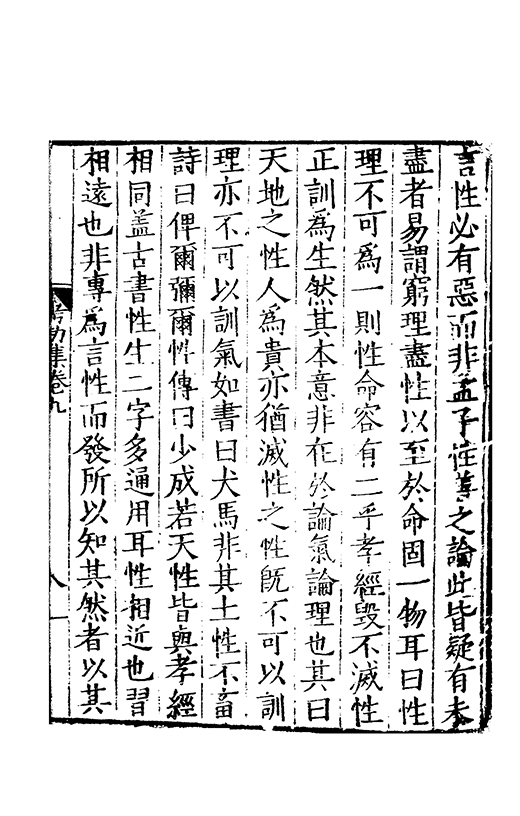 言性必有惡而非孟子性善之論此皆疑有未
盡者易謂窮理盡性以至於命固一物耳曰性
理不可為一則性命容有二乎孝經毀不滅性
正訓為生然其本意非在於論氣論理也其曰
天地之性人為貴亦猶滅性之性旣不可以訓
理亦不可以訓氣如書曰犬馬非其土性不畜
詩曰俾爾彌爾性傳曰少成若天性皆與孝經
相同盖古書性生二字多通用耳性相近也習
相遠也非專為言性而發所以知其然者以其
考功集卷九
八